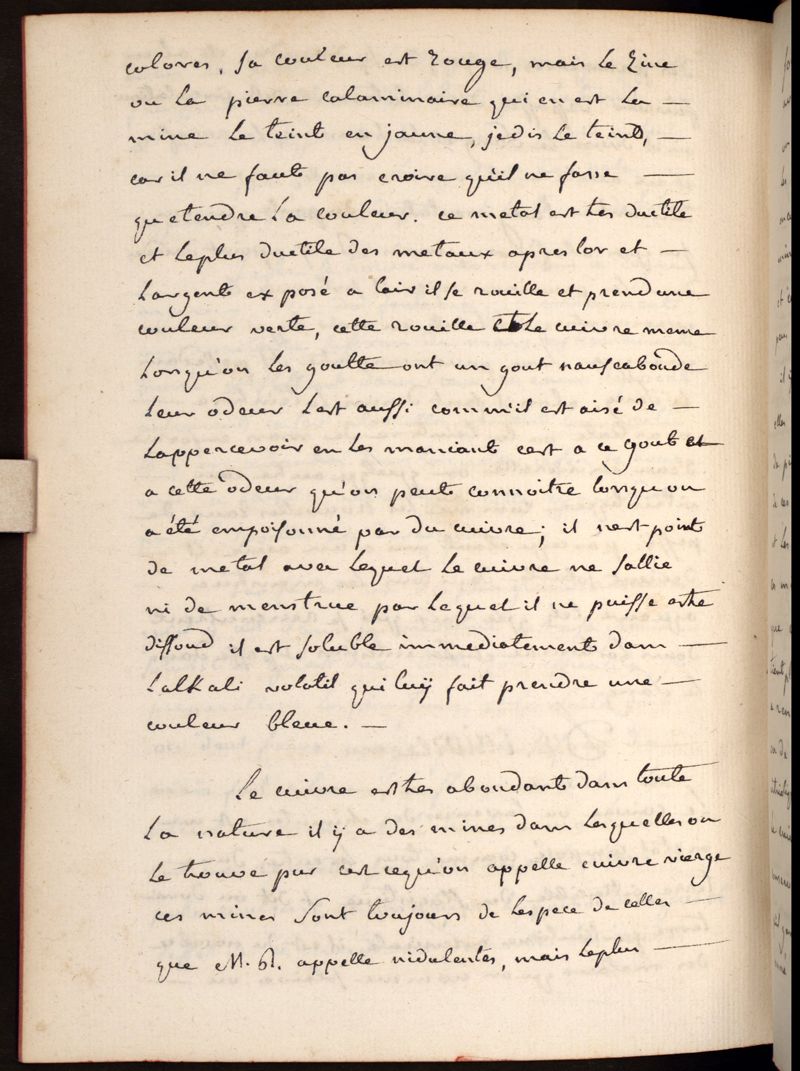 colores. sa couleur est rouge, mais le zinc
ou la pierre calaminaire qui en est la —
mine le teint en jaune, je dis le teint, —
car il ne faut pas croire qu'il ne fasse —
qu etendre la couleur. ce metal est tres ductile
et le plus ductile des metaux apres lor et —
largent ex posé a lair il se rouille et prend une
couleur verte, cette rouille et le cuivre meme
lorsqu'on les goutte ont un gout nauseabonde
leur odeur lest aussi comm'il est aisé de —
lappercevoir en les maniant cest a ce gout et
a cette odeur qu'on peut connoitre lorsquon
a été empoisonné par du cuivre; il nest point
de metal avec lequel le cuivre ne sallie
ni de menstrue par lequel il ne puisse etre
dissoud il est soluble immediatement dans —
lalkali volatil qui luÿ fait prendre une —
couleur bleue. —
Le cuivre est tres abondant dans toute
la nature il ÿ a des mines dans lesquelles on
le trouve pur cest cequ'on appelle cuivre vierge
ces mines sont toujours de lespece de celles —
que M. R. appelle nidulentes, mais le plus —